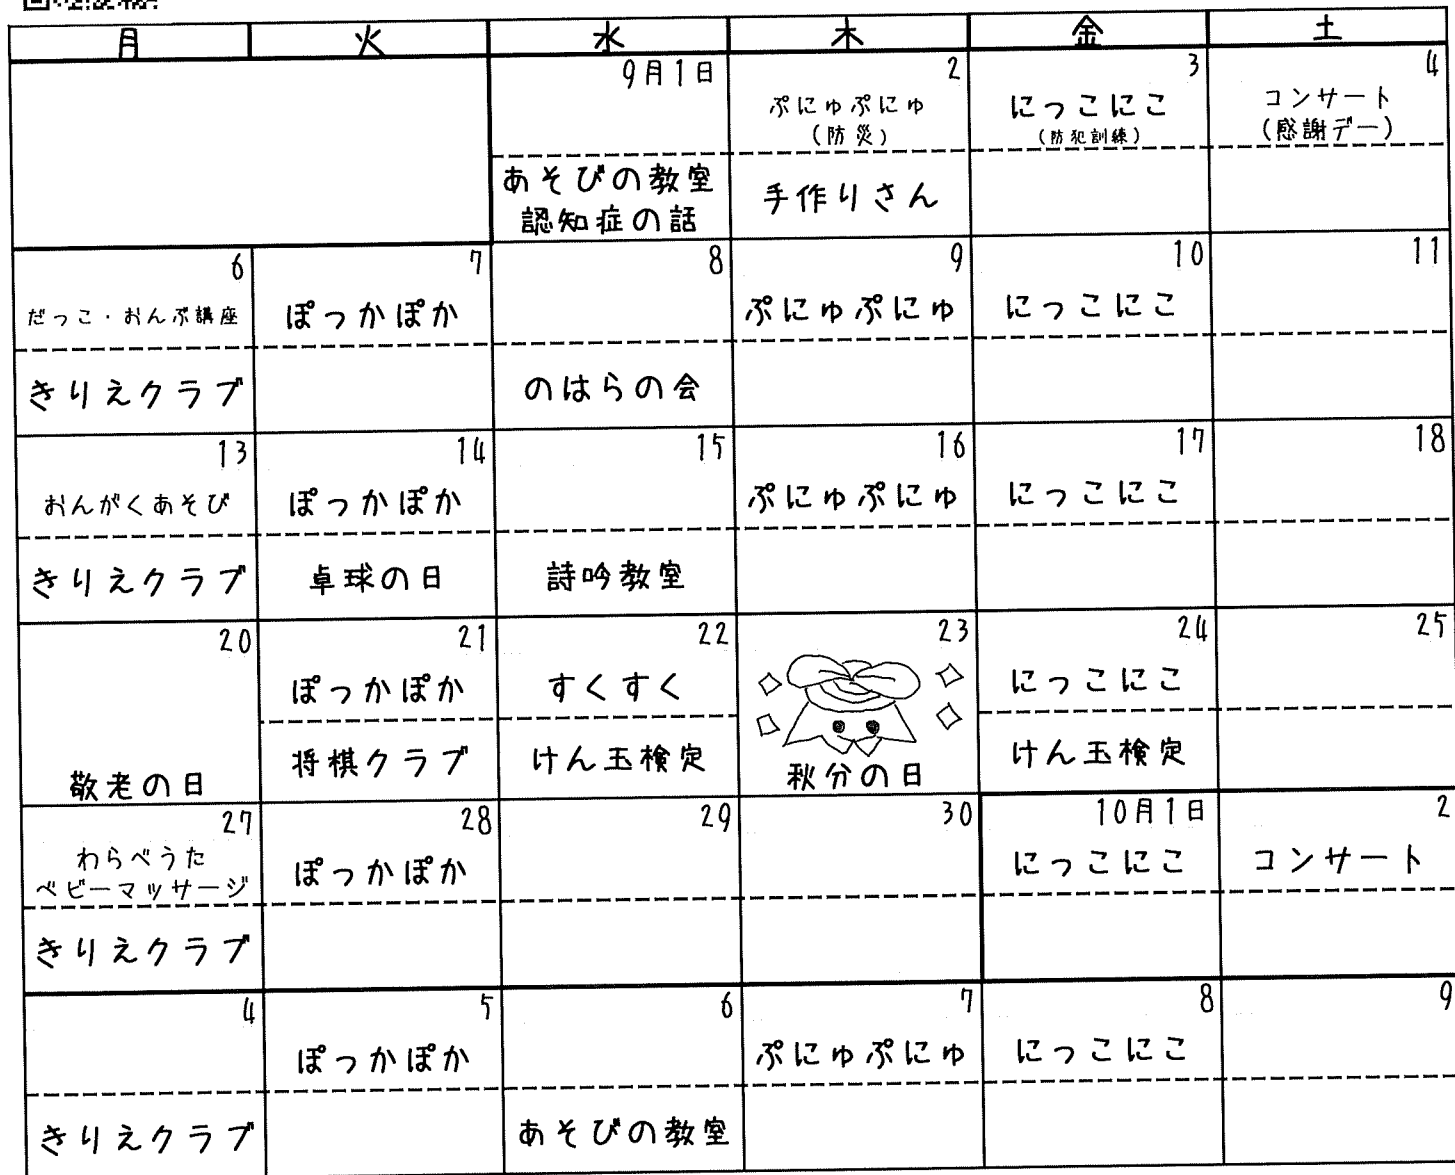 月 火 水 木 金 土
9月1日
あそびの教室
認知症の話
2
ぷにゅぷにゅ
(防災)
手作りさん
3
にっこにこ
(防犯訓練)
4
コンサート
(感謝デー)
6
だっこ・おんぶ講座
きりえクラブ
7
ぽっかぽか
8
のはらの会
9
ぷにゅぷにゅ
10
にっこにこ
11
13
おんがくあそび
きりえクラブ
14
ぽっかぽか
卓球の日
15
詩吟教室
16
ぷにゅぷにゅ
17
にっこにこ
18
20
敬老の日
21
ぽっかぽか
将棋クラブ
22
すくすく
けん玉検定
23
秋分の日
24
にっこにこ
けん玉検定
25
27
わらべうた
ベビーマッサージ
きりえクラブ
28
ぽっかぽか
29
30
10月1日
にっこにこ
2
コンサート
4
きりえクラブ
5
ぽっかぽか
6
あそびの教室
7
ぷにゅぷにゅ
8
にっこにこ
9